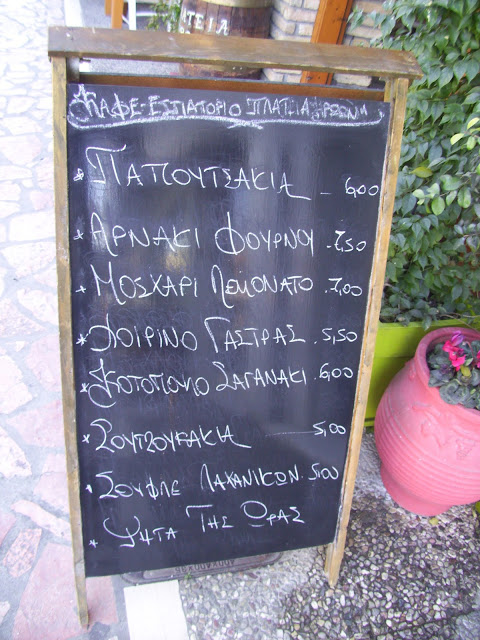 ΤΕΙΑ
ΚΑΦΕ-ΕΣΤΙΑΤΟΡΙΟ ΠΛΑΤΣΙΑ
ΠΑΠΟΥΤΣΑΚΙΑ - 6,00
ΑΡΝΑΚΙ ΦΟΥΡΝΟΥ 7,50
ΜΟSΧΑΡΙ ΛΕΜΟΝΑΤΟ 7,00
ΧΟΙΡΙΝΟ ΓΑΣΤΡΑΣ 5,50
ΚΟΤΟΠΟΥΛΟ ΣΑΓΑΝΑΚΙ 6,00
ΣΟΥΤΖΟΥΚΑΚΙΑ - 5,00
ΣΟΥΦΛΕ ΛΑΧΑΝΙΚΩΝ 5,00
ΨΗΤΑ ΤΗΣ ΩΡΑΣ